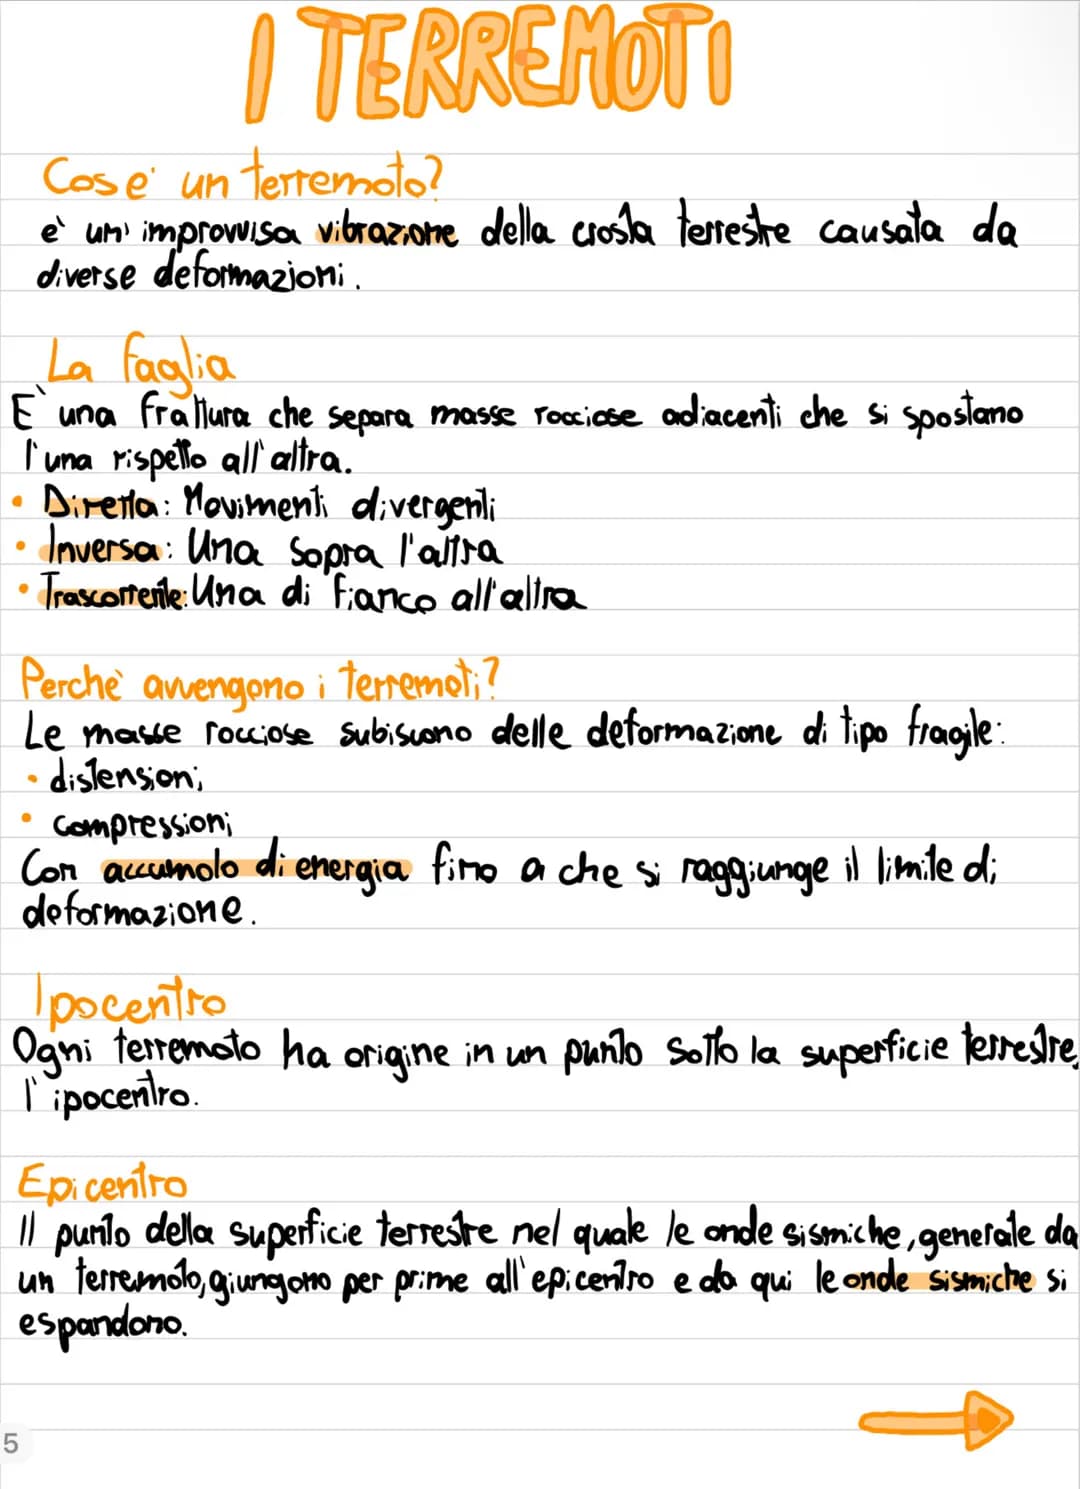 I TERREMOTI
Cos'è un terremoto?
è un' improvvisa vibrazione della crosta terrestre causata da
diverse deformazioni.
La faglia
E' una frattura che separa masse rocciose adiacenti che si spostano
l'una rispetto all'altra.
• Diretta: Movimenti divergenti
• Inversa: Una sopra l'altra
• Trascorrente: Una di fianco all'altra
Perchè avvengono i terremoti?
Le masse rocciose subiscono delle deformazione di tipo fragile:
• distensioni
• compressioni
Con accumolo di energia fino a che si raggiunge il limite di
deformazione.
Ipocentro
Ogni terremoto ha origine in un punto sotto la superficie terrestre,
l'ipocentro.
Epicentro
Il punto della superficie terrestre nel quale le onde sismiche, generate da
un terremoto, giungono per prime all'epicentro e da qui le onde sismiche si
espandono.
5